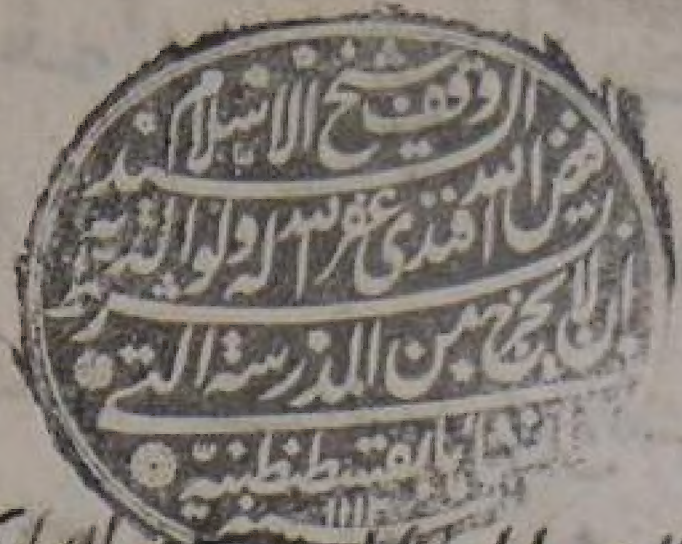 وقف شيخ الاسلام السيد
فيض الله افندى غفر الله له ولوالديه
بشرط ان لا يخرج من المدرسة التى
انشأها بقسطنطنية
سنه ١١١١